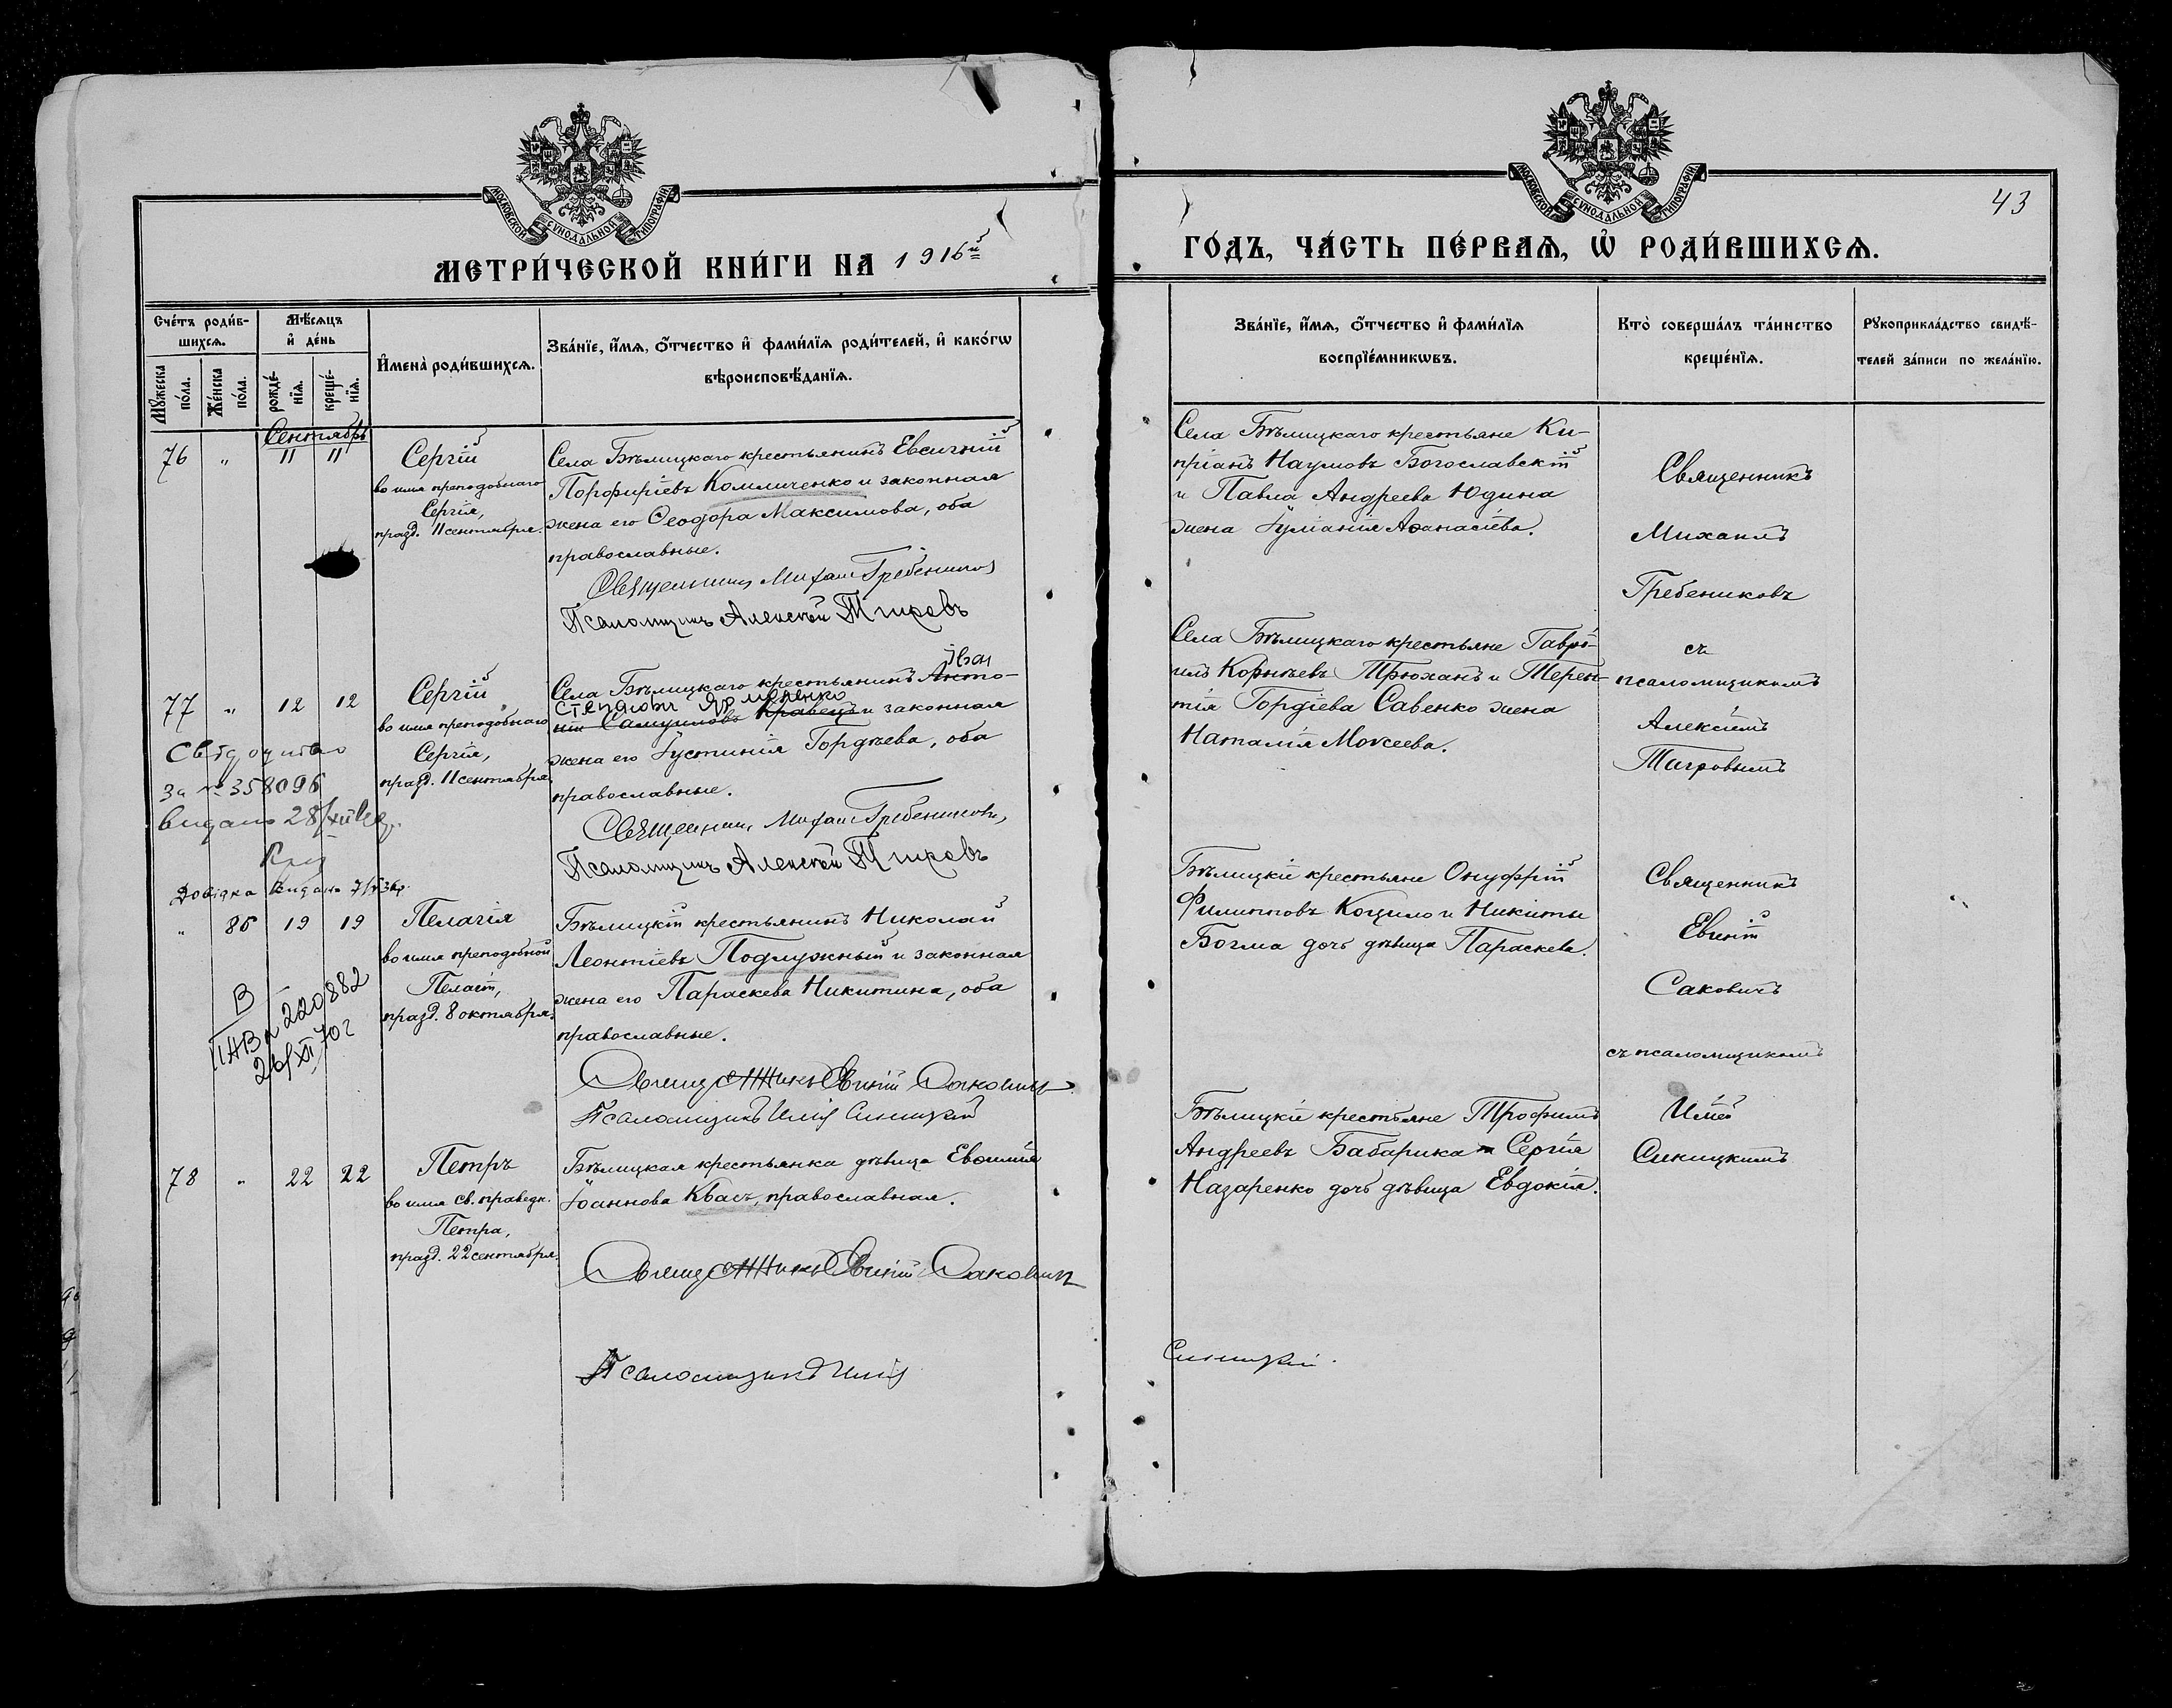 МОСКОВСКОЙ СѴНОДАЛЬНОЙ ТИПОГРАФІИ
МОСКОВСКОЙ СѴНОДАЛЬНОЙ ТИПОГРАФІИ
43
МЕТРИ́ЧЕСКОЙ КНИ́ГИ НА 1916й
ГО́ДЪ, ЧА́СТЬ ПЕ́РВАѦ, Ѡ҆ РОДИ́ВШИХСѦ.
Сче́тъ роди́в-
шихсѧ.
Мꙋжеска по́ла.
Же́нска по́ла.
Мѣ́сѧцъ
и҆ де́нь
рожде́-
нїѧ.
креще́-
нїѧ.
И҆мена̀ роди́вшихсѧ.
Зва́нїе, и҆́мѧ, ѻ҆́тчество и҆ фами́лїѧ роди́телей, и҆ како́гѡ
вѣроисповѣ́данїѧ.
Зва́нїе, и҆́мѧ, ѻ҆́тчество и҆ фами́лїѧ
воспрїе́мникѡвъ.
Кто̀ соверша́лъ та́инство
креще́нїѧ.
Рꙋкоприкла́дство свидѣ́-
телей за́писи по жела́нїю.
Сентябрь
76 " 11 11
Сергій
во имя преподобнаго
Сергія,
празд. 11 сентября.
Села Бѣлицкаго крестьянинъ Евсигній
Порфиріевъ Коммиченко и законная
жена его Ѳеодора Максимова, оба
православные.
Священникъ Михаил Гребениковъ
Псаломщикъ Алексѣй Тигровъ
Села Бѣлицкаго крестьяне Ки-
пріанъ Наумовъ Богославскій
и Павла Андреева Юдина
жена Іуліанія Аѳанасіева.
Священникъ
Михаилъ
Гребениковъ
съ
псаломщикомъ
Алексіемъ
Тигровымъ
77 " 12 12
Сергій
во имя преподобнаго
Сергія,
празд. 11 сентября.
Іван
Села Бѣлицкаго крестьянинъ Анто-
Степанов Яременко
ній Самуиловъ Кравецъ и законная
жена его Іустинія Гордѣева, оба
православные.
Священникъ Михаил Гребениковъ
Псаломщикъ Алексѣй Тигровъ
Села Бѣлицкаго крестьяне Гаврі-
илъ Корнѣевъ Трюханъ и Терен-
тія Гордіева Савенко жена
Наталія Моѵсеева.
за № 358096
видано 28/XII
Довідка видана
" 86 19 19
Пелагія
во имя преподобной
Пелагіи,
празд. 8 октября.
Бѣлицкій крестьянинъ Николай
Леонтіевъ Подлужный и законная
жена его Параскева Никитина, оба
православные.
Священникъ Евгеній Саковичъ
Псаломщикъ Илія Синицкій
Бѣлицкіе крестьяне Онуфрій
Филипповъ Коцило и Никиты
Богма дочь дѣвица Параскева.
Священникъ
Евгеній
Саковичъ
съ псаломщикомъ
Иліей
Синицкимъ
220882
26/XI 70 г
78 " 22 22
Петръ
во имя св. праведн.
Петра,
празд. 22 сентября.
Бѣлицкая крестьянка дѣвица Евѳимія
Іоаннова Квасъ, православная.
Священникъ Евгеній Саковичъ
Псаломщикъ Илія Синицкій.
Бѣлицкіе крестьяне Трофимъ
Андреевъ Бабарика и Сергія
Назаренко дочь дѣвица Евдокія.